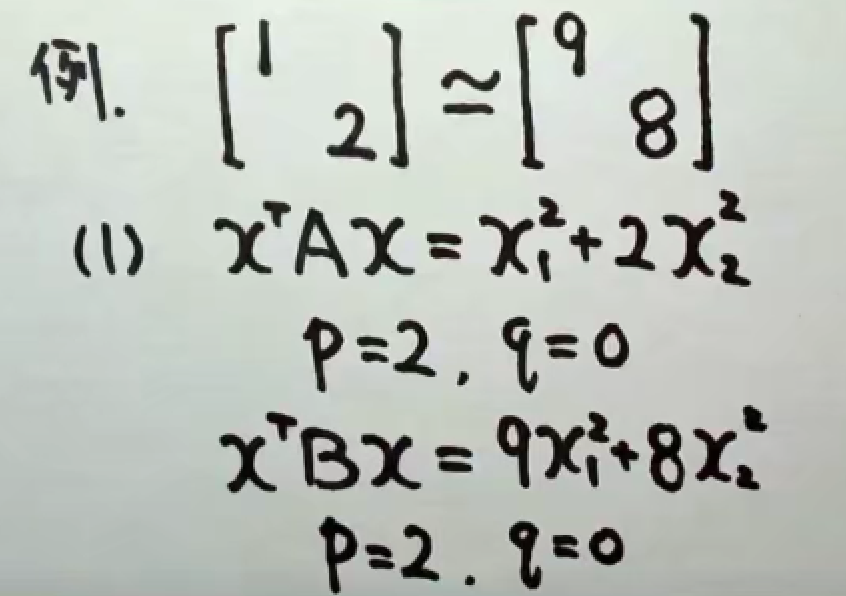 例. [1 2] ≃ [9 8]
(1) xᵀAx = x₁² + 2x₂²
p=2, q=0
xᵀBx = 9x₁² + 8x₂²
p=2. q=0